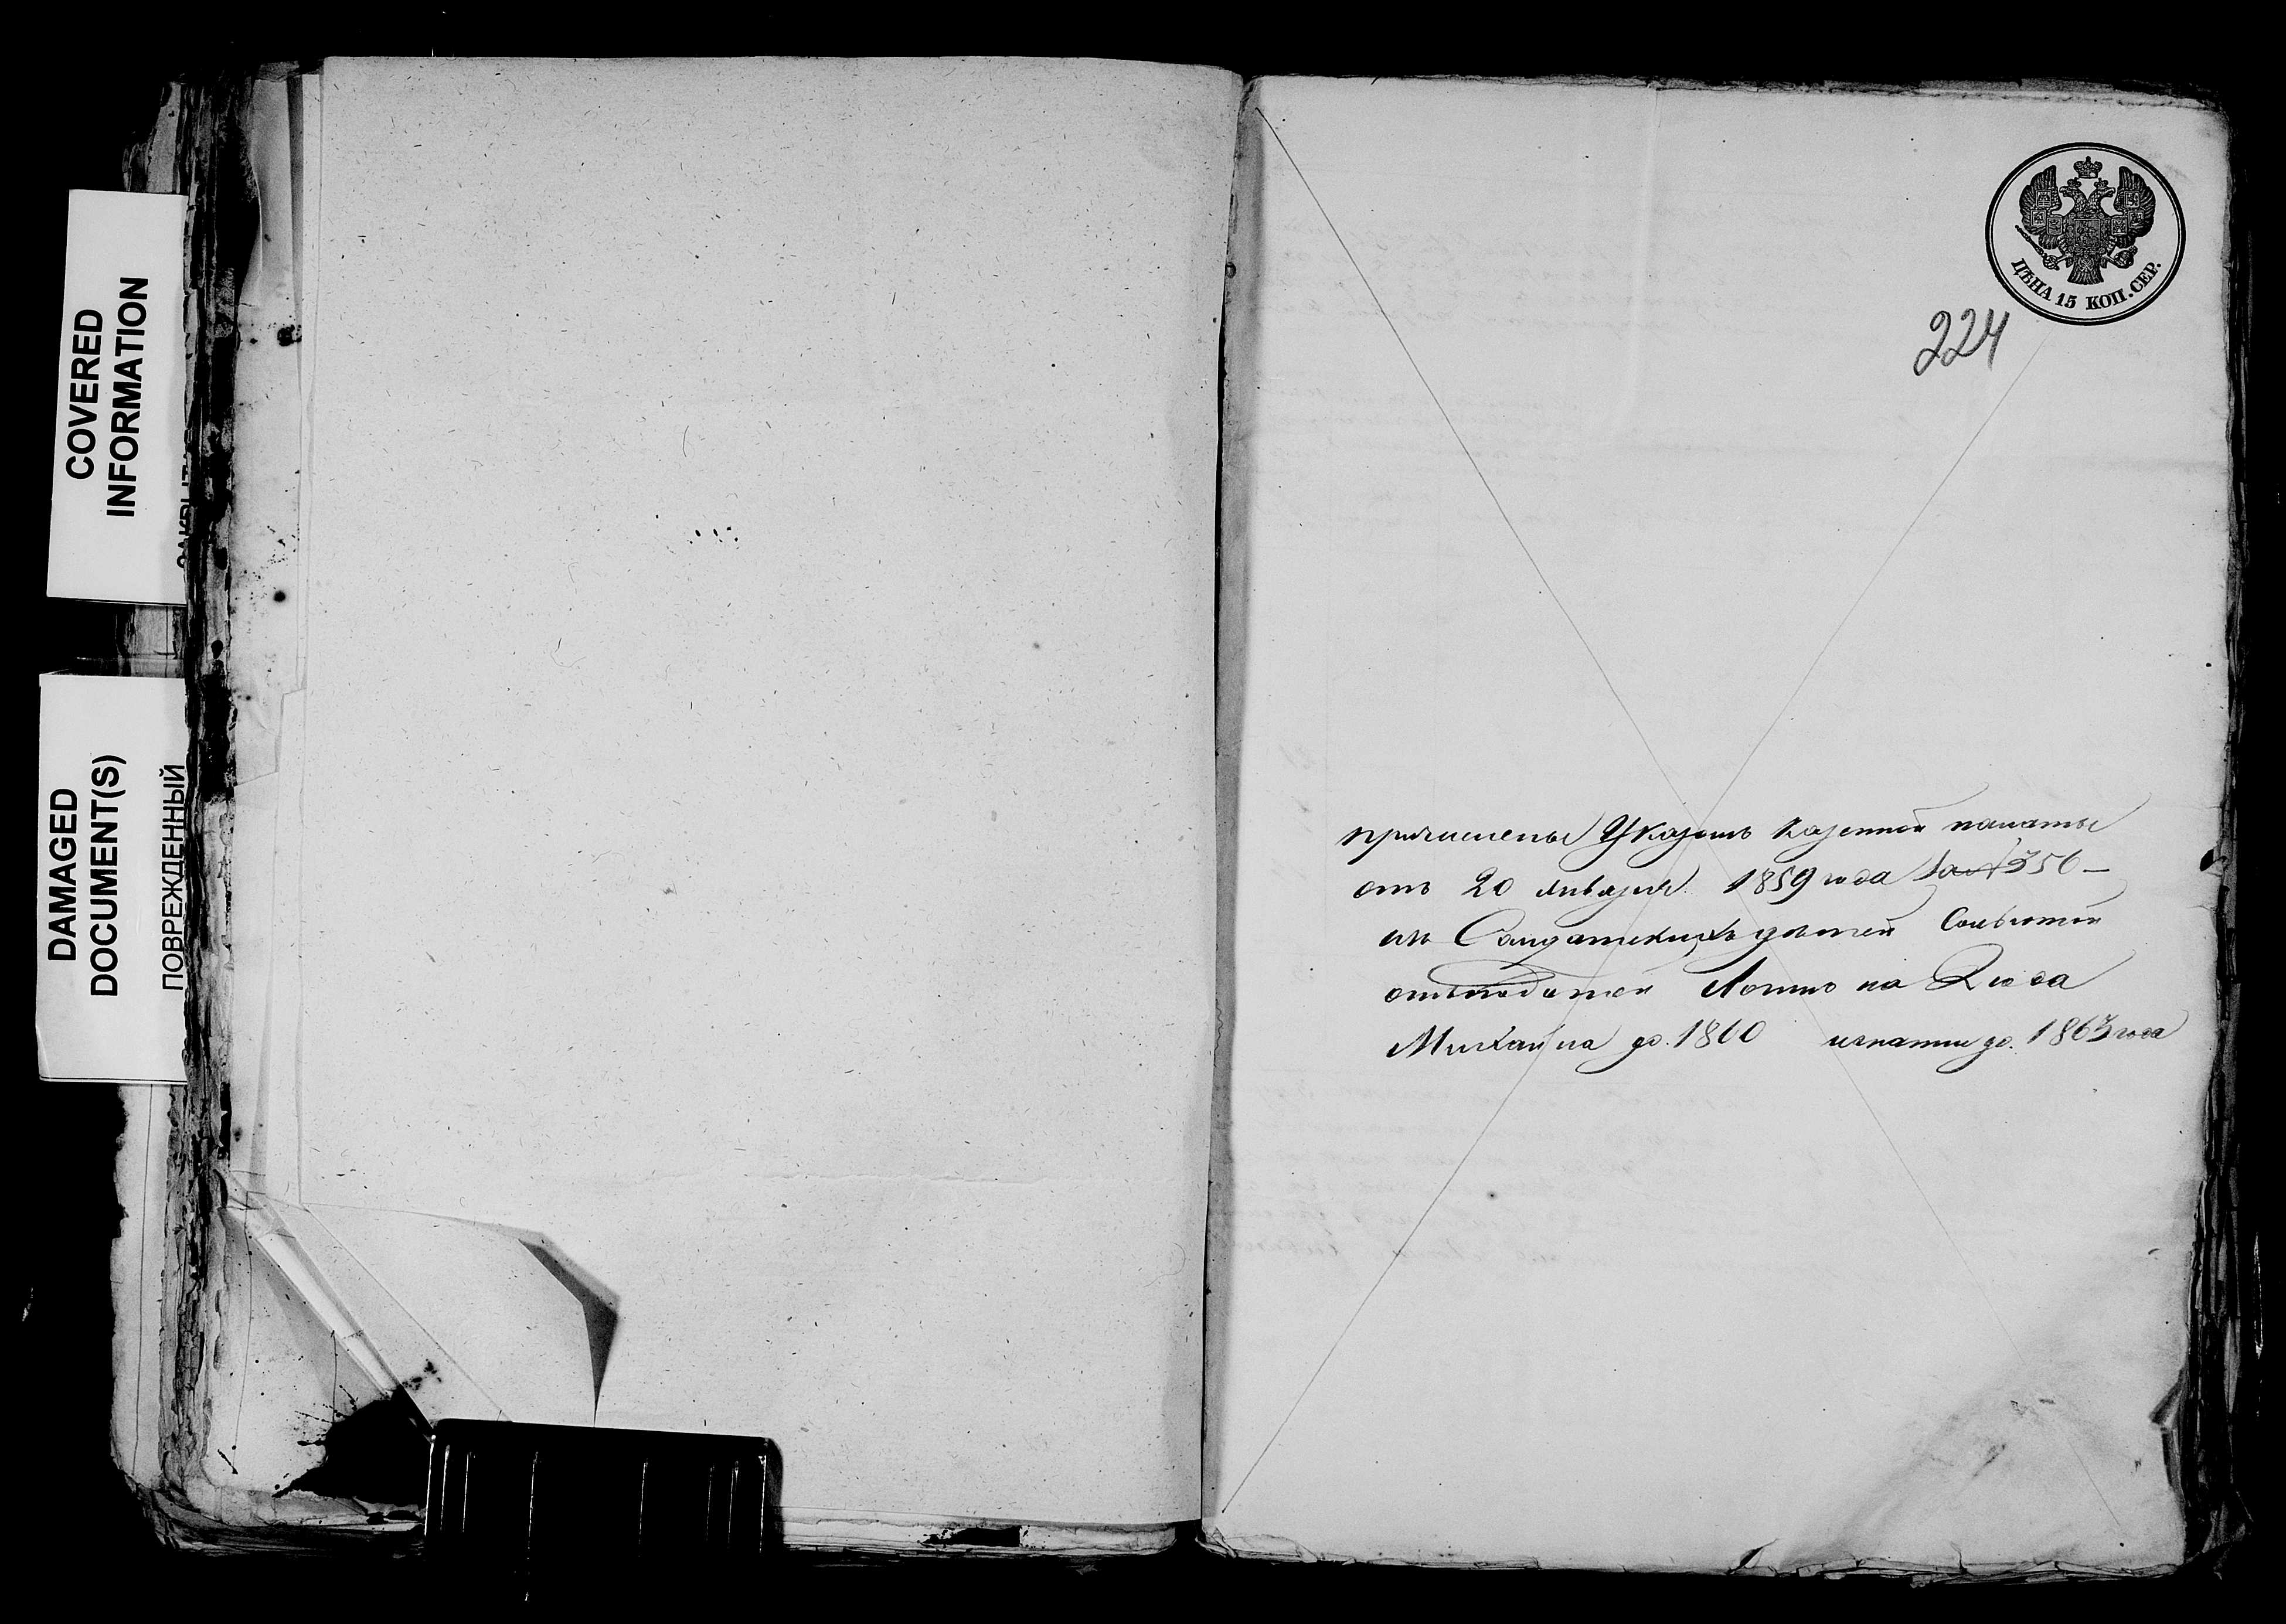 COVERED
INFORMATION
DAMAGED
DOCUMENT(S)
ПОВРЕЖДЕННЫЙ
ЦѢНА 15 КОП. СЕР.
224
причислены Указомъ Казенной палаты
отъ 20 января 1859 года за № 350 –
изъ Солдатскихъ детей Сольготой
отъ податей Логинъ на 2 года
Михаила до 1860 игнатий до 1863 года